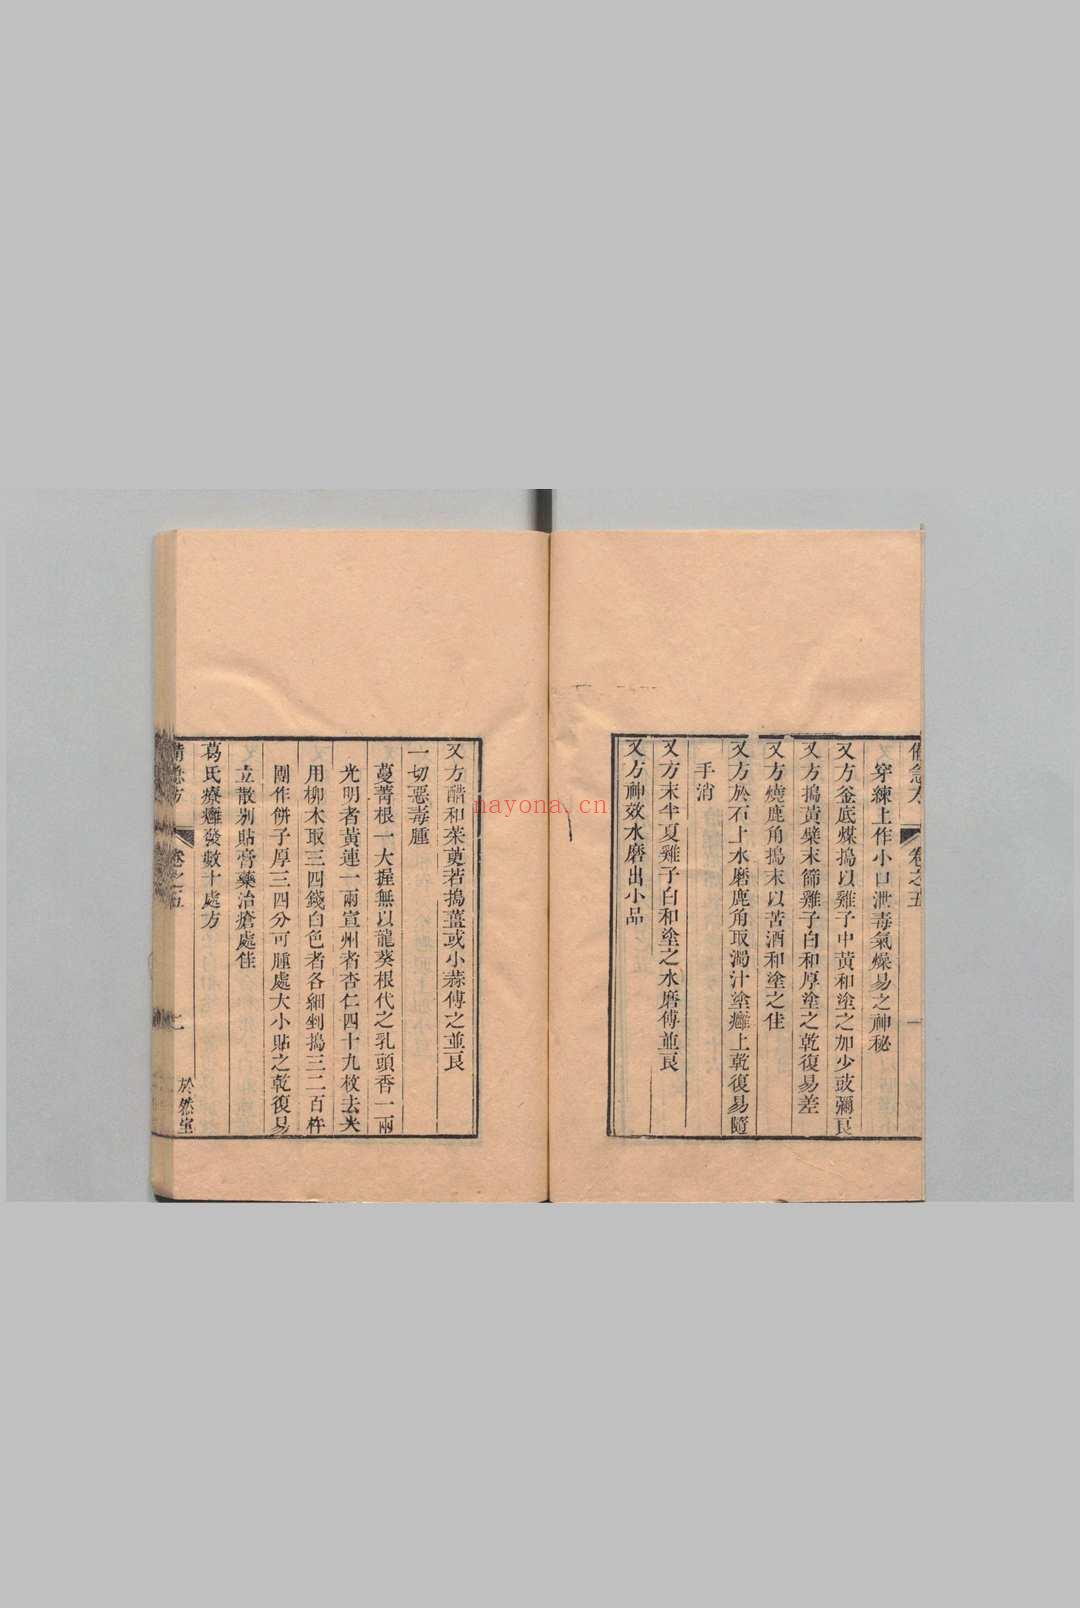 備急方 卷之五 一
穿練上作小口泄毒氣燥易之神秘
又方釜底煤搗以雞子中黃和塗之加少豉彌良
又方搗黃檗末篩雞子白和厚塗之乾復易差
又方燒鹿角搗末以苦酒和塗之佳
又方於石上水磨鹿角取濁汁塗癰上乾復易隨
手消
又方末半夏雞子白和塗之水磨傅並良
又方神效水磨出小品
又方醋和茱萸若搗薑或小蒜傅之並良
一切惡毒腫
蔓菁根一大握無以龍葵根代之乳頭香一兩
光明者黃連一兩宣州者杏仁四十九枚去尖
用柳木取三四錢白色者各細剉搗三二百杵
團作餅子厚三四分可腫處大小貼之乾復易
立散別貼膏藥治瘡處佳
葛氏療癰發數十處方
備急方 卷之五 七 於然室
nayona.cn